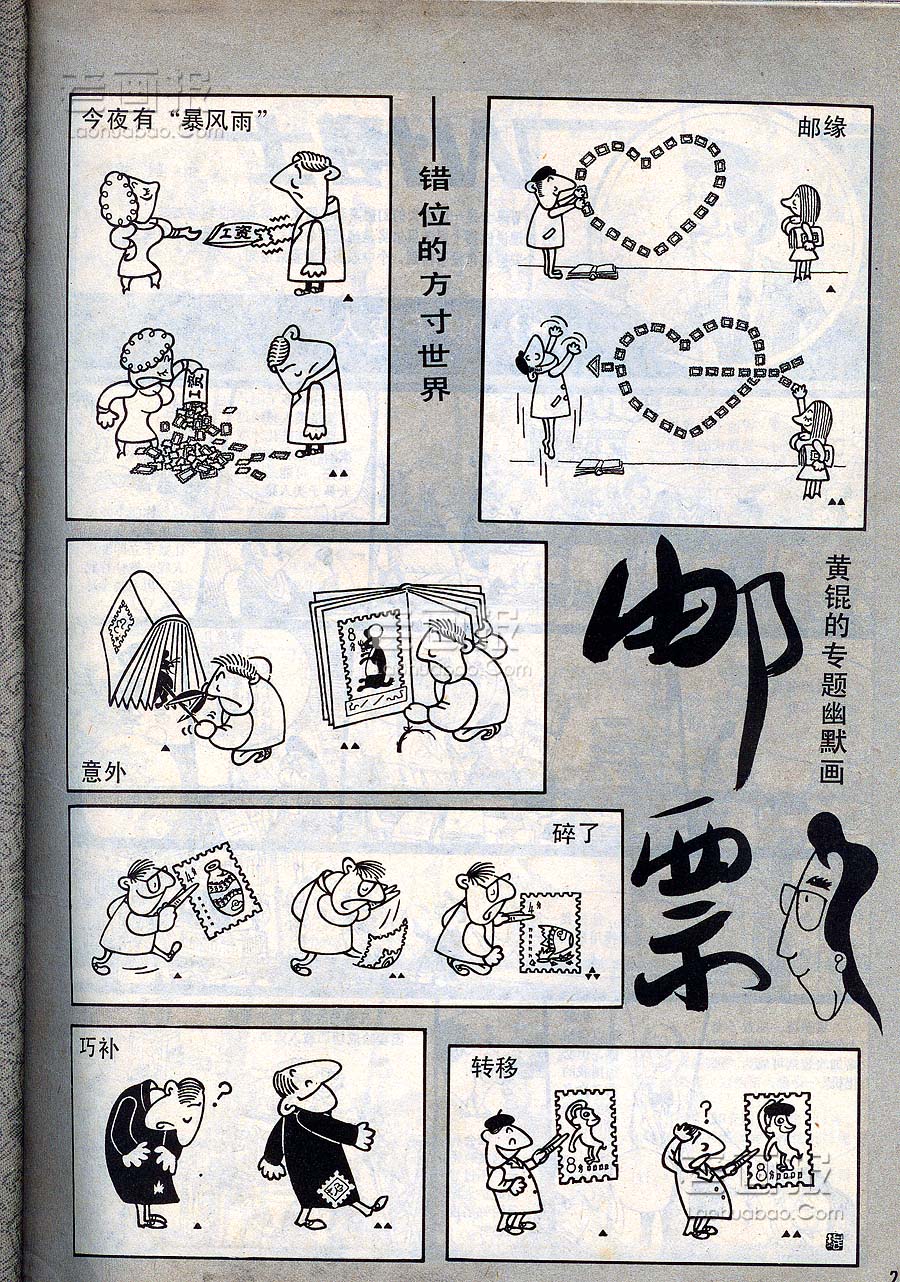 老画报
Laohuabao.Com
今夜有“暴风雨”
工资
工资
——错位的方寸世界
邮缘
邮票
黄锟的专题幽默画
意外
8分
老画报
Laohuabao.Com
碎了
4分
4分
巧补
转移
8分
8分
老画报
Laohuabao.Com
2